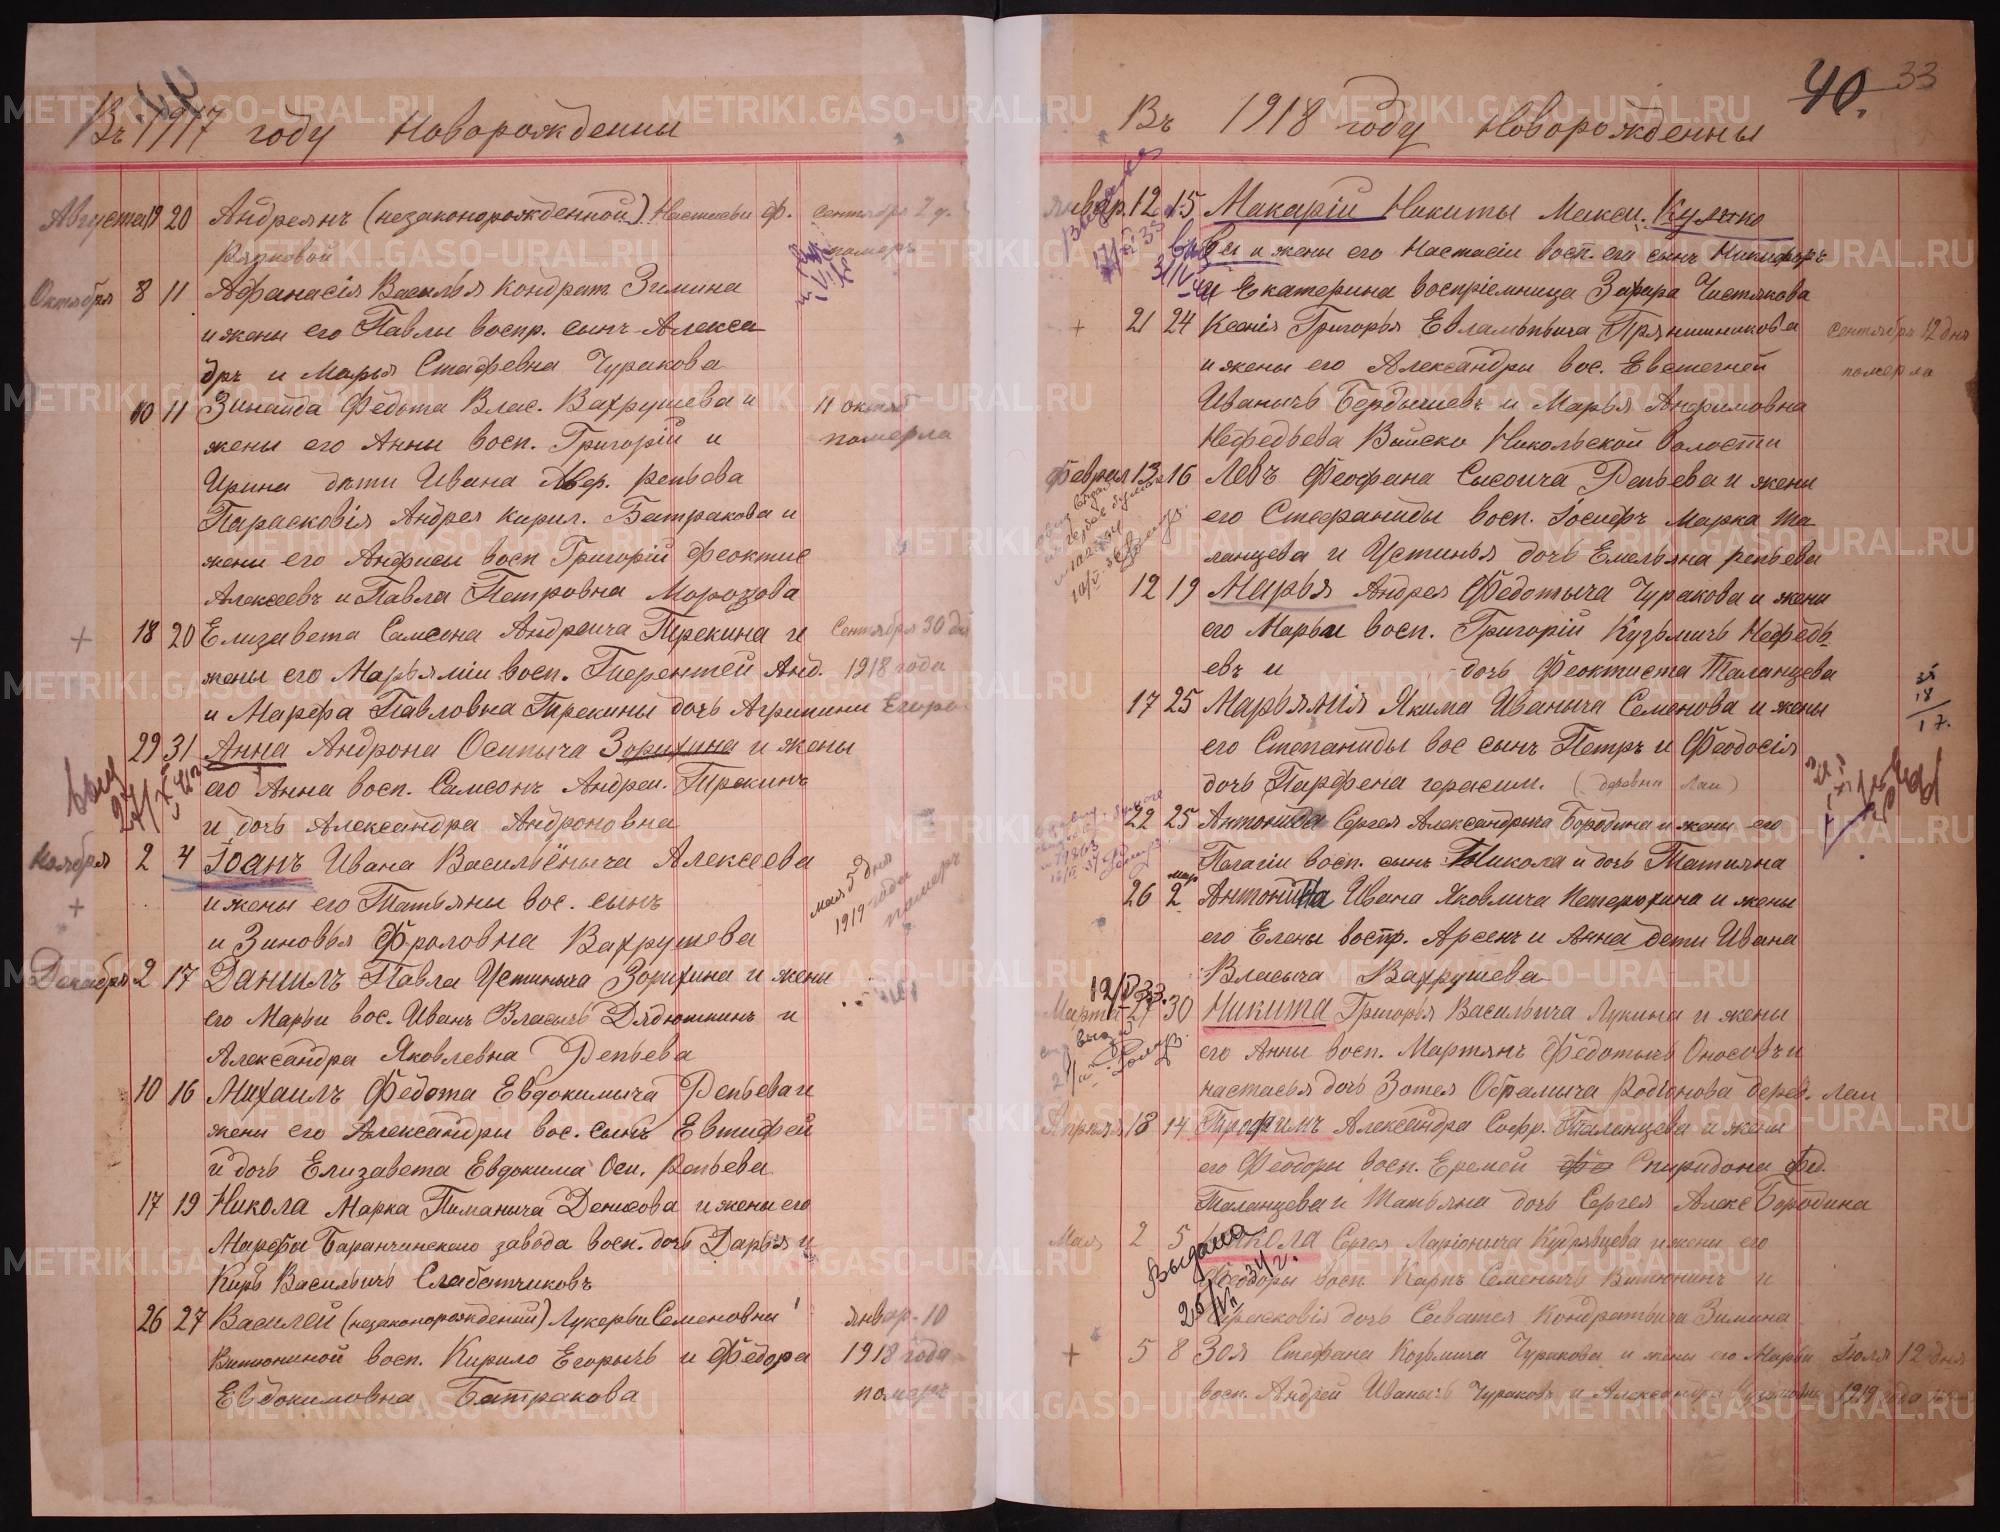 Въ 1917 году Новорожденны
Августа 19 20 Андреянъ (незаконорожденной) Настасьи Ф. сентября 2 д.
Рядковой померъ
Октября 8 11 Афанасія Василья Кондрат Зимина
и жены его Павлы воспр. сынъ Алекса
дръ и Марья Стафевна Чуракова
10 11 Зинаида Федота Влас. Вахрушева и 11 октяб
жены его Анны восп. Григорій и померла
Ирина дѣти Ивана Авер. Репьева
Парасковія Андрея Кирил. Батракова и
жены его Анфисы восп Григорій Феоктис
Алексеевъ и Павла Петровна Морозова
18 20 Елизавета Самсона Андреича Трекина и Сентября 30 дня
жены его Марьяміи восп. Тиерентей Анд. 1918 года
и Марфа Павловна Трекины дочь Агрипины Егоро
29 31 Анна Андрона Осипыча Зорихина и жены
его Анна восп. Самсонъ Андреи. Трекинъ
и дочь Александра Андроновна
Ноября 2 4 Іоанъ Ивана Васильёныча Алексеева мая 5 дня
и жены его Татьяны вос. сынъ 1919 года
и Зиновья Фроловна Вахрушева померъ
Декабря 2 17 Данилъ Павла Устиныча Зорихина и жены
его Марьи вос. Иванъ Власычь Дядюшкинъ и
Александра Яковлевна Репьева
10 16 Михаилъ Федота Евдокимыча Репьева и
жены его Александры вос. сынъ Евтифей
и дочь Елизавета Евдокима Оси. Репьева
17 19 Никола Марка Пиманыча Денисова и жены его
Марфы Баранчинского завода восп. дочь Дарья и
Киръ Васильичь Слаботчиковъ
26 27 Василей (незаконорождений) Лукерьи Семеновны январ. 10
Витюниной восп. Кирило Егорычъ и Федора 1918 года
Евдокимовна Батракова померъ
40. 33
Въ 1918 году Новорожденны
Январ. 12 15 Макарій Никиты Макси. Куляко
вы и жены его Настасіи восп. его сынъ Никифоръ
и Екатерина воспріемница Захара Чистякова
21 24 Ксенія Григорья Евлампьыча Прянишникова сентябрь 12 дня
и жены его Александры вос. Евстегней померла
Иванычь Бердышевъ и Марья Анфимовна
Нефедьева Войско Никольской волости
Феврал 13 16 Левъ Феофана Сысоича Репьева и жены
его Стефаниды восп. Іосифъ Марка Та
ланцева и Устинья дочь Емельяна репьева
12 19 Марья Андрея Федотыча Чуракова и жены
его Марьи восп. Григорій Кузьмичь Нефедь-
евъ и дочь Феоктиста Таланцева
17 25 Марьямія Якима Иваныча Семенова и жены
его Степаниды вос сынъ Петръ и Феодосія
дочь Парфена герасим. (деревни Лаи)
22 25 Антонида Сергея Александрыча Бородина и жены его
Пагагіи восп. сынъ Никола и дочь Татияна
26 мар 2 Антонина Ивана Яковлича Нетерюхина и жены
его Елены воспр. Арсенъ и Анна дети Ивана
Власыча Вахрушева
Марта 27 30 Никита Григорья Васильича Лукина и жены
его Анны восп. Мартянъ Федотычь Оносовъ и
настасья дочь Зотея Обрамыча Родіонова дерев. Лаи
Апреля 13 14 Трофимъ Александра Софр. Таланцева и жены
его Феодоры восп. Еремей Спиридона Фед.
Таланцева и Татьяна дочь Сергея Алекс Бородина
Мая 2 5 Никола Сергея Ларіоныча Кудрявцева и жены его
Феодоры восп Карпъ Семенычь Витюнинъ и
Парасковія дочь Саватея Кондратьича Зимина
5 8 Зоя Стефана Козьмича Чуракова и жены его Марьи Іюля 12 дня
восп. Андрей Иванычь Чураковъ и Александра 1919 года
Выдана
25/VII 34 г.
METRIKI.GASO-URAL.RU